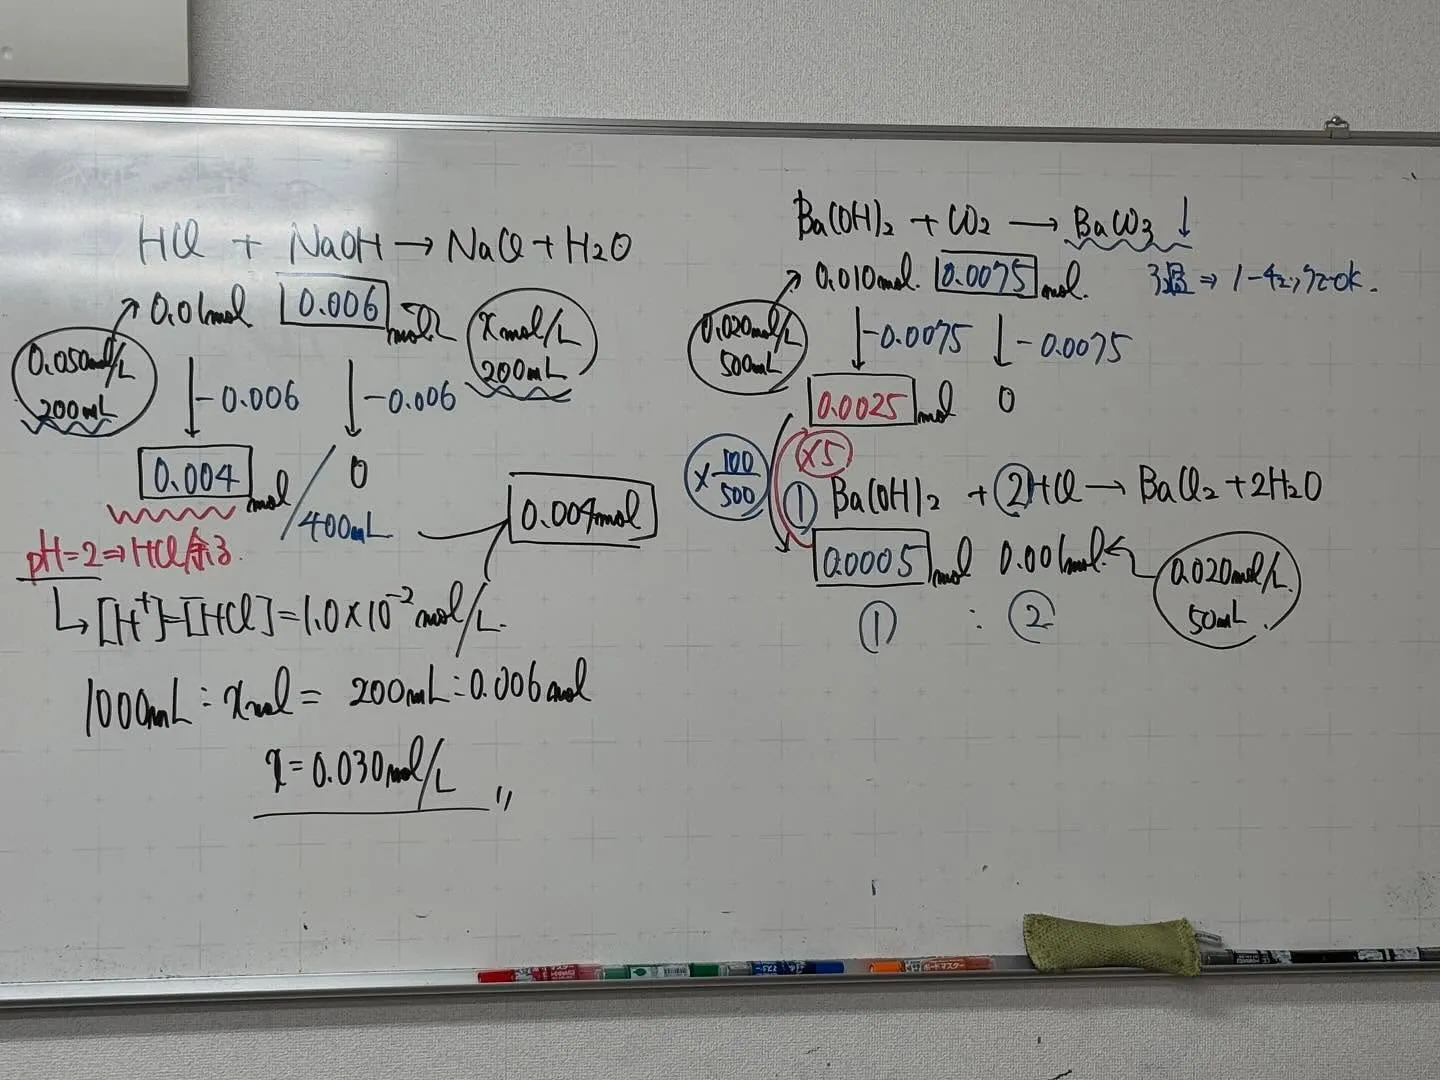 HCl + NaOH → NaCl + H2O
0.01mol 0.006 mol
0.050mol/L
200mL
xmol/L
200mL
-0.006 -0.006
0.004 mol 0
400mL
0.004mol
pH=2 ⇒ HCl余る.
[H+]=[HCl]=1.0×10-2mol/L.
1000mL : xmol = 200mL : 0.006mol
x=0.030mol/L 〃
Ba(OH)2 + CO2 → BaCO3 ↓
0.010mol. 0.0075 mol.
3過⇒
ok.
0.020mol/L
500mL
-0.0075 -0.0075
0.0025 mol 0
×100/500
×5
① Ba(OH)2 + ②HCl → BaCl2 + 2H2O
0.0005 mol 0.001mol.
0.020mol/L.
50mL.
① : ②
ボードマスター